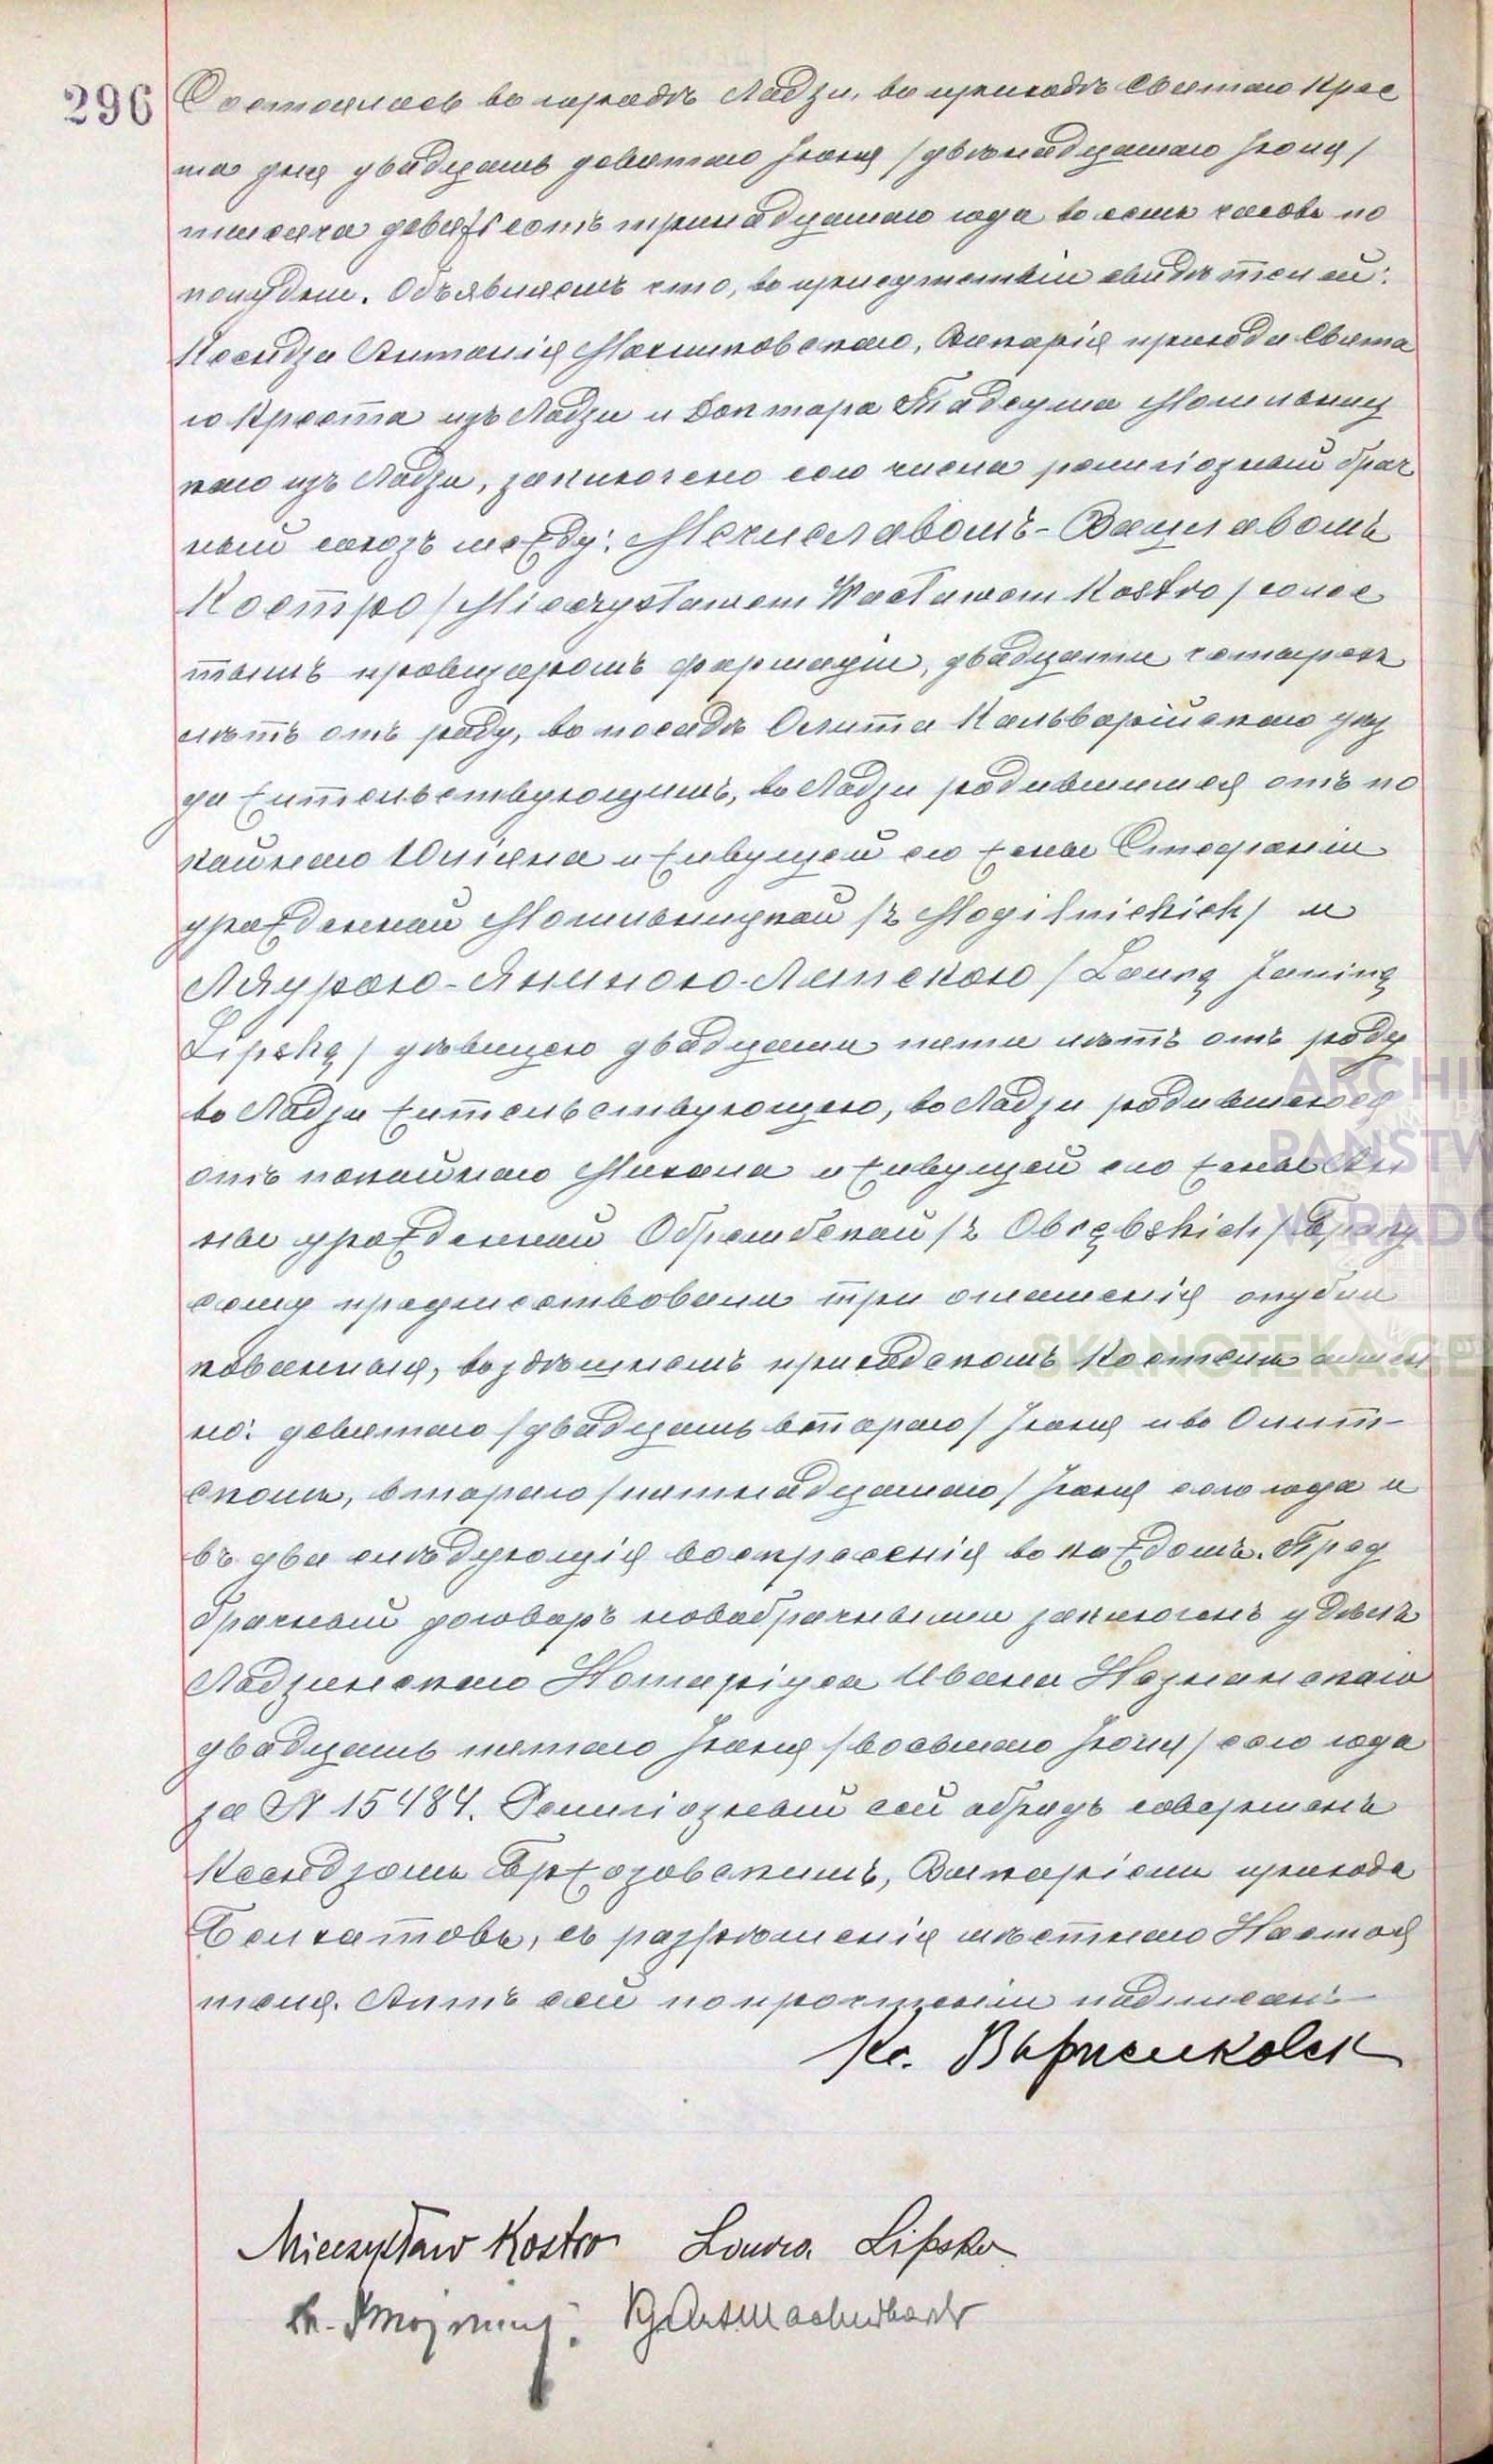 296
Состоялось въ городѣ Лодзи, въ приходѣ Святаго Крес
та дня двадцать девятаго Іюня /двѣнадцатаго Іюля/
тысяча девятьсотъ тринадцатаго года въ семь часовъ по
полудни. Объявляемъ что, въ присутствіи свидѣтелей:
Ксендза Антонія Махниковскаго, Викарія прихода Свята
го Креста изъ Лодзи и Доктора Тадеуша Могильниц
каго изъ Лодзи, заключено сего числа религіозный брач
ный союзъ между: Мечиславомъ-Вацлавомъ
Костро /Mieczysławem Wacławem Kostro/ холос
тымъ провизоромъ фармаціи, двадцати четырехъ
лѣтъ отъ роду, въ посадѣ Олита Кальварійскаго уѣз
да жительствующимъ, въ Лодзи родившимся отъ по
койнаго Юліяна и живущей его жены Стефаніи
урожденной Могильницкой /z Mogilnickich/ и
Ляурою-Яниною-Липскою /Laurą Janiną
Lipską/ дѣвицею двадцати пяти лѣтъ отъ роду
въ Лодзи жительствующею, въ Лодзи родившеюся
отъ покойнаго и живущей его жены Ан
ны урожденной Обрембской /z Obrębskich/ Браку
сему предшествовали три оглашенія опубли
кованныя, въ здѣшнемъ приходскомъ Костелѣ имен
но: девятаго /двадцать втораго/ Іюня и въ Олит-
скомъ, втораго /пятнадцатаго/ Іюня сего года и
въ два слѣдующія воскресенія въ каждомъ. Пред
брачный договоръ новобрачными заключенъ у дѣлъ
Лодзинскаго Нотаріуса Ивана
двадцать пятаго Іюня /восьмаго Іюля/ сего года
за N 15484. Религіозный сей обрядъ совершенъ
Ксендзомъ Бржозовскимъ, Викаріемъ прихода
Белхатовъ, съ разрѣшенія мѣстнаго Настоя
теля. Актъ сей по прочтеніи подписанъ
Кс.
Mieczysław Kostro Laura Lipska
ARCHI
PAŃSTW
W RADO
SKANOTEKA.GE